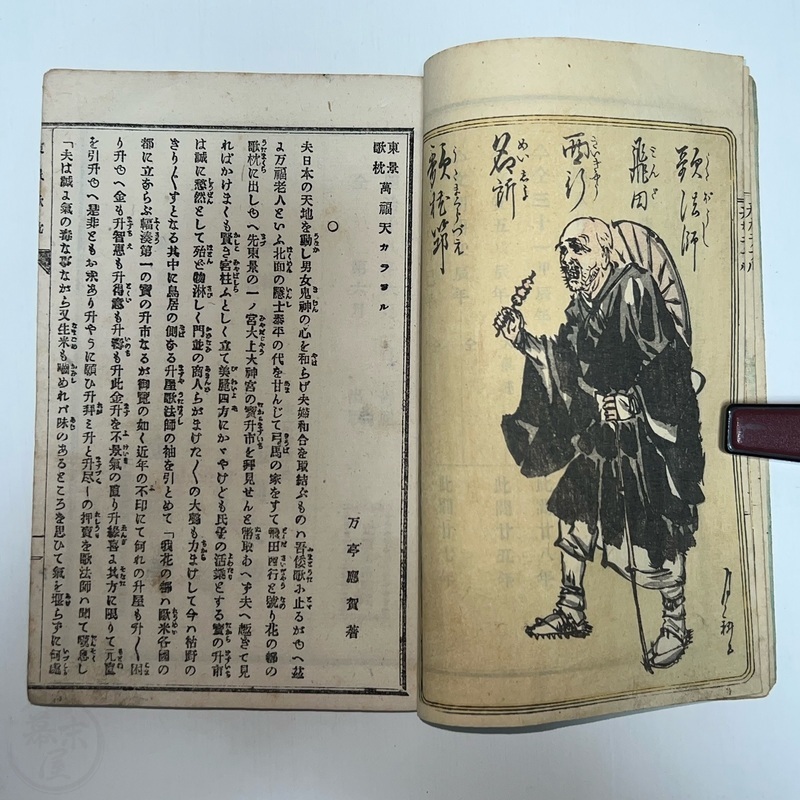 歌法師
飛田
西行
名所
歌枕笻
東景
歌枕
萬福天カラヲル
万亭應賀著
夫日本の天地を動し男女鬼神の心を和らげ夫婦和合を取結ぶものハ吾倭歌ふ止るが也へ茲
よ万福老人といふ北面の隱士泰平の代を甘んじて弓馬の家をすて飛田西行と號り花の都の
歌枕に出し也へ先東景の一ノ宮大上大神宮の寶升市を拜見せんと幣取あへず夫へ趣きて見
ればかけまくも賢き宮柱ふとしく立て美麗四方にかゞやけども民草の活溌とする寶の升市
は誠に愁然として殆ど物淋しく門並の商人らがまけた〱の大聲も力まけして今ハ枯野の
きり〲すとなる其中に鳥居の側なる升屋歌法師の袖を引とめて「我花の都ハ歐米各國の
都に立ならぶ輻湊第一の寶の升市なるが御覽の如く近年の不印にて何れの升屋も升〱困
り升也へ金も升智惠も升得意も升壽も升此金升を不景氣の直り升縁喜よ其方に限りて元直
を引升也へ是非ともお求あり升やうに願ひ升拜ミ升と升尽しの押賣を歌法師ハ聞て嘆息し
「夫は誠よ氣の毒な事ながら又生米も嚙めれバ味のあるところを思ひて氣を堰らずに何處